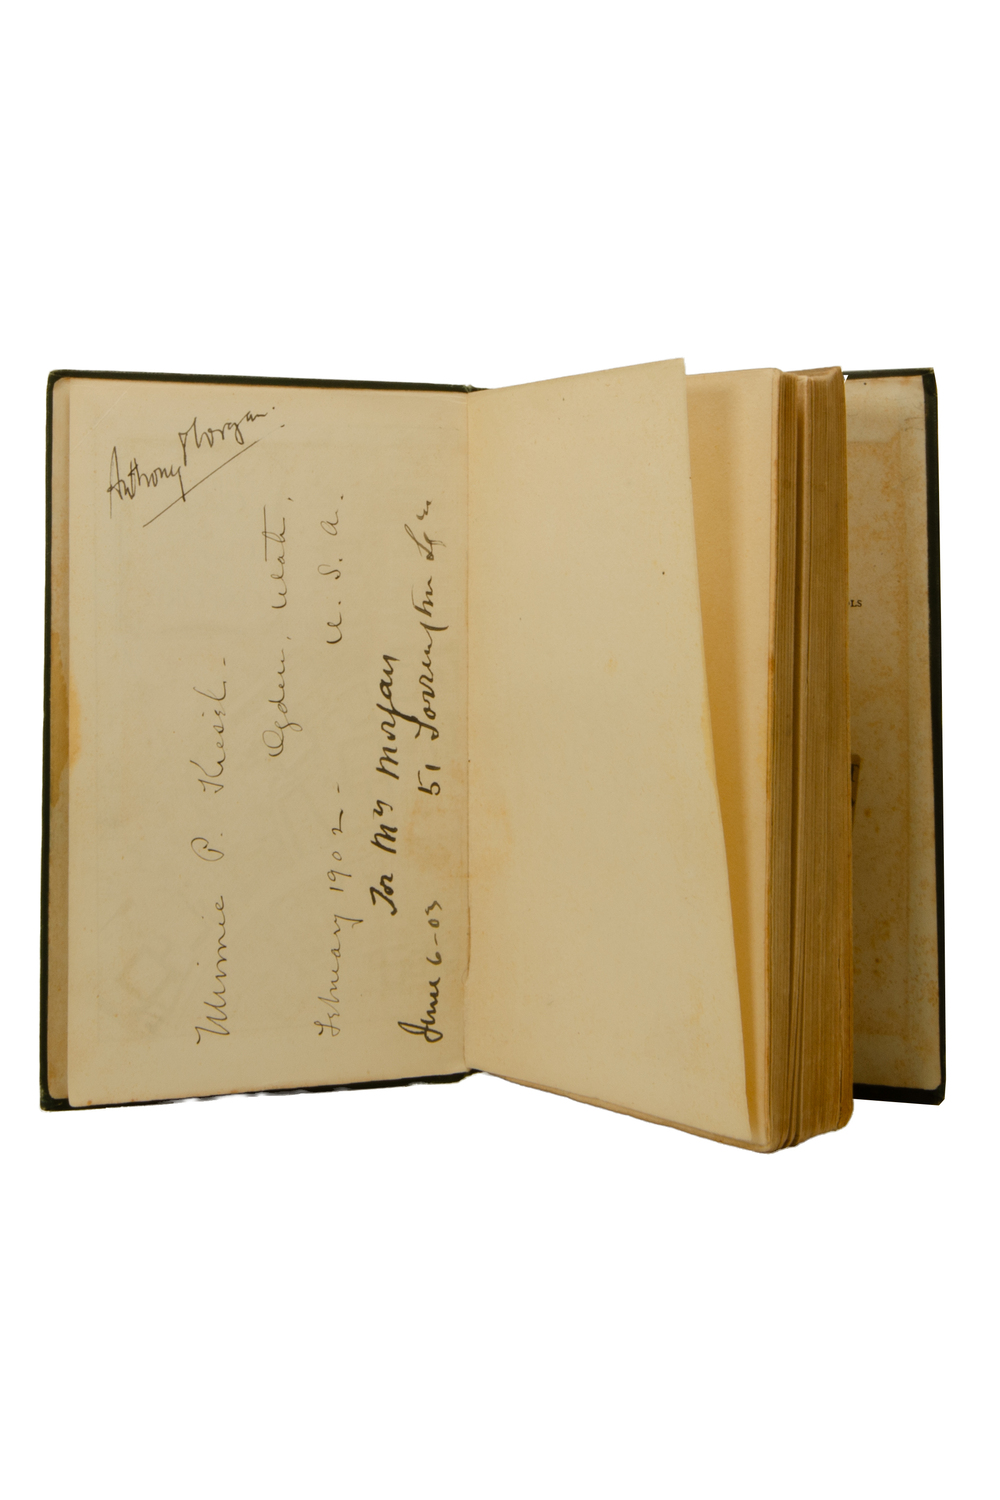 Anthony Morgan.
Minnie P. Kiesel.-
Ogden, Utah,
February 1902- U. S. A.
For Mrs Morgan
June 6-03 51 Torrington Sqre
OLS